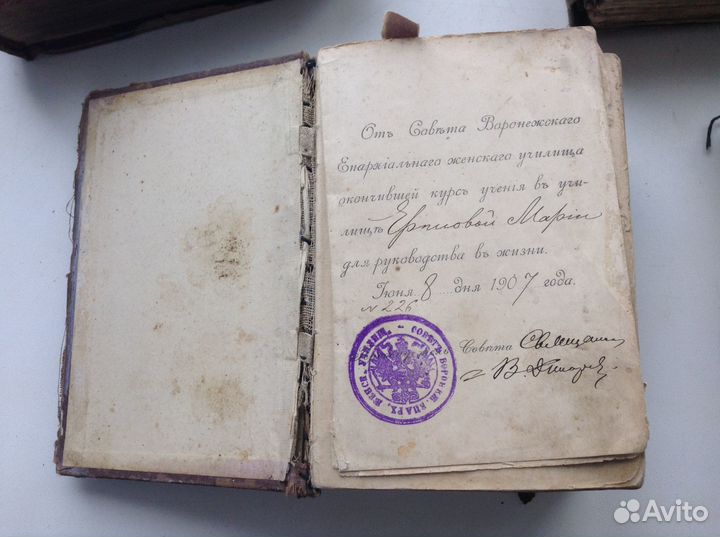 Отъ Совѣта Воронежскаго
Епархіальнаго женскаго училища
окончившей курсъ ученія въ учи-
лищѣ Маріи
для руководства въ жизни.
Іюня 8 дня 1907 года.
№ 226
Совѣта
СОВѢТЪ ВОРОНЕЖ. ЕПАРХ. ЖЕНСК. УЧИЛИЩ.
Avito